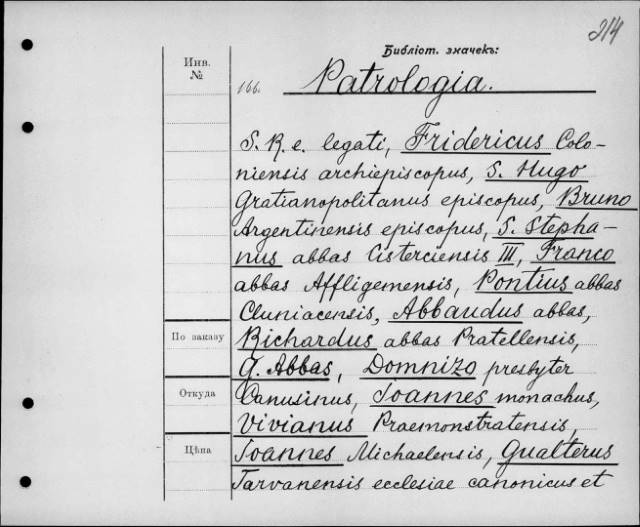 214
Библіот. значекъ:
Инв.
№
166.
Patrologia.
S. R. e. legati, Fridericus Colo-
niensis archiepiscopus, S. Hugo
Gratianopolitanus episcopus, Bruno
Argentinensis episcopus, S. Stepha-
nus abbas Cisterciensis III, Franco
abbas Affligemensis, Pontius abbas
Cluniacensis, Abbaudus abbas,
По заказу
Richardus abbas Pratellensis,
G. Abbas, Domnizo presbyter
Откуда
Canusinus, Joannes monachus,
Vivianus Praemonstratensis,
Цѣна
Joannes Michaelensis, Gualterus
Tarvanensis ecclesiae canonicus et